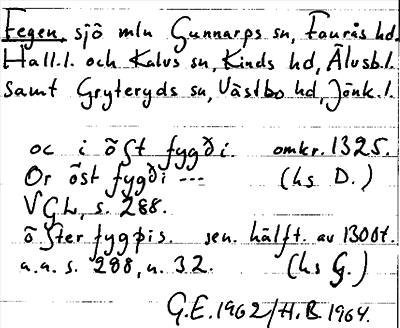 Fegen, sjö mln Gunnarps sn, Faurås hd,
Hall.l. och Kalvs sn, Kinds hd, Älvsb.l.
samt Gryteryds sn, Västbo hd, Jönk.l.
oc i ö̃st fygði. omkr. 1325.
Or ö̃st fygði --- (hs D.)
VGL, s. 288.
ö̃ster fygþis. sen. hälft. av 1300t.
a.a. s. 288, n. 32. (hs G.)
G.E. 1962/H.B 1964.